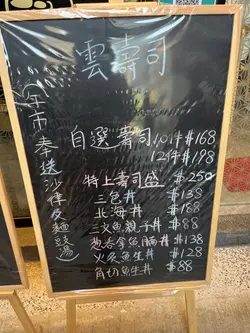 雲壽司
午市奉送沙律及麵豉湯
自選壽司10件$168
12件$198
特上壽司盛 $250
三色丼 $138
北海丼 $188
三文魚親子丼 $88
葱吞拿魚腩丼 $138
火炙魚生丼 $128
角切魚生丼 $88